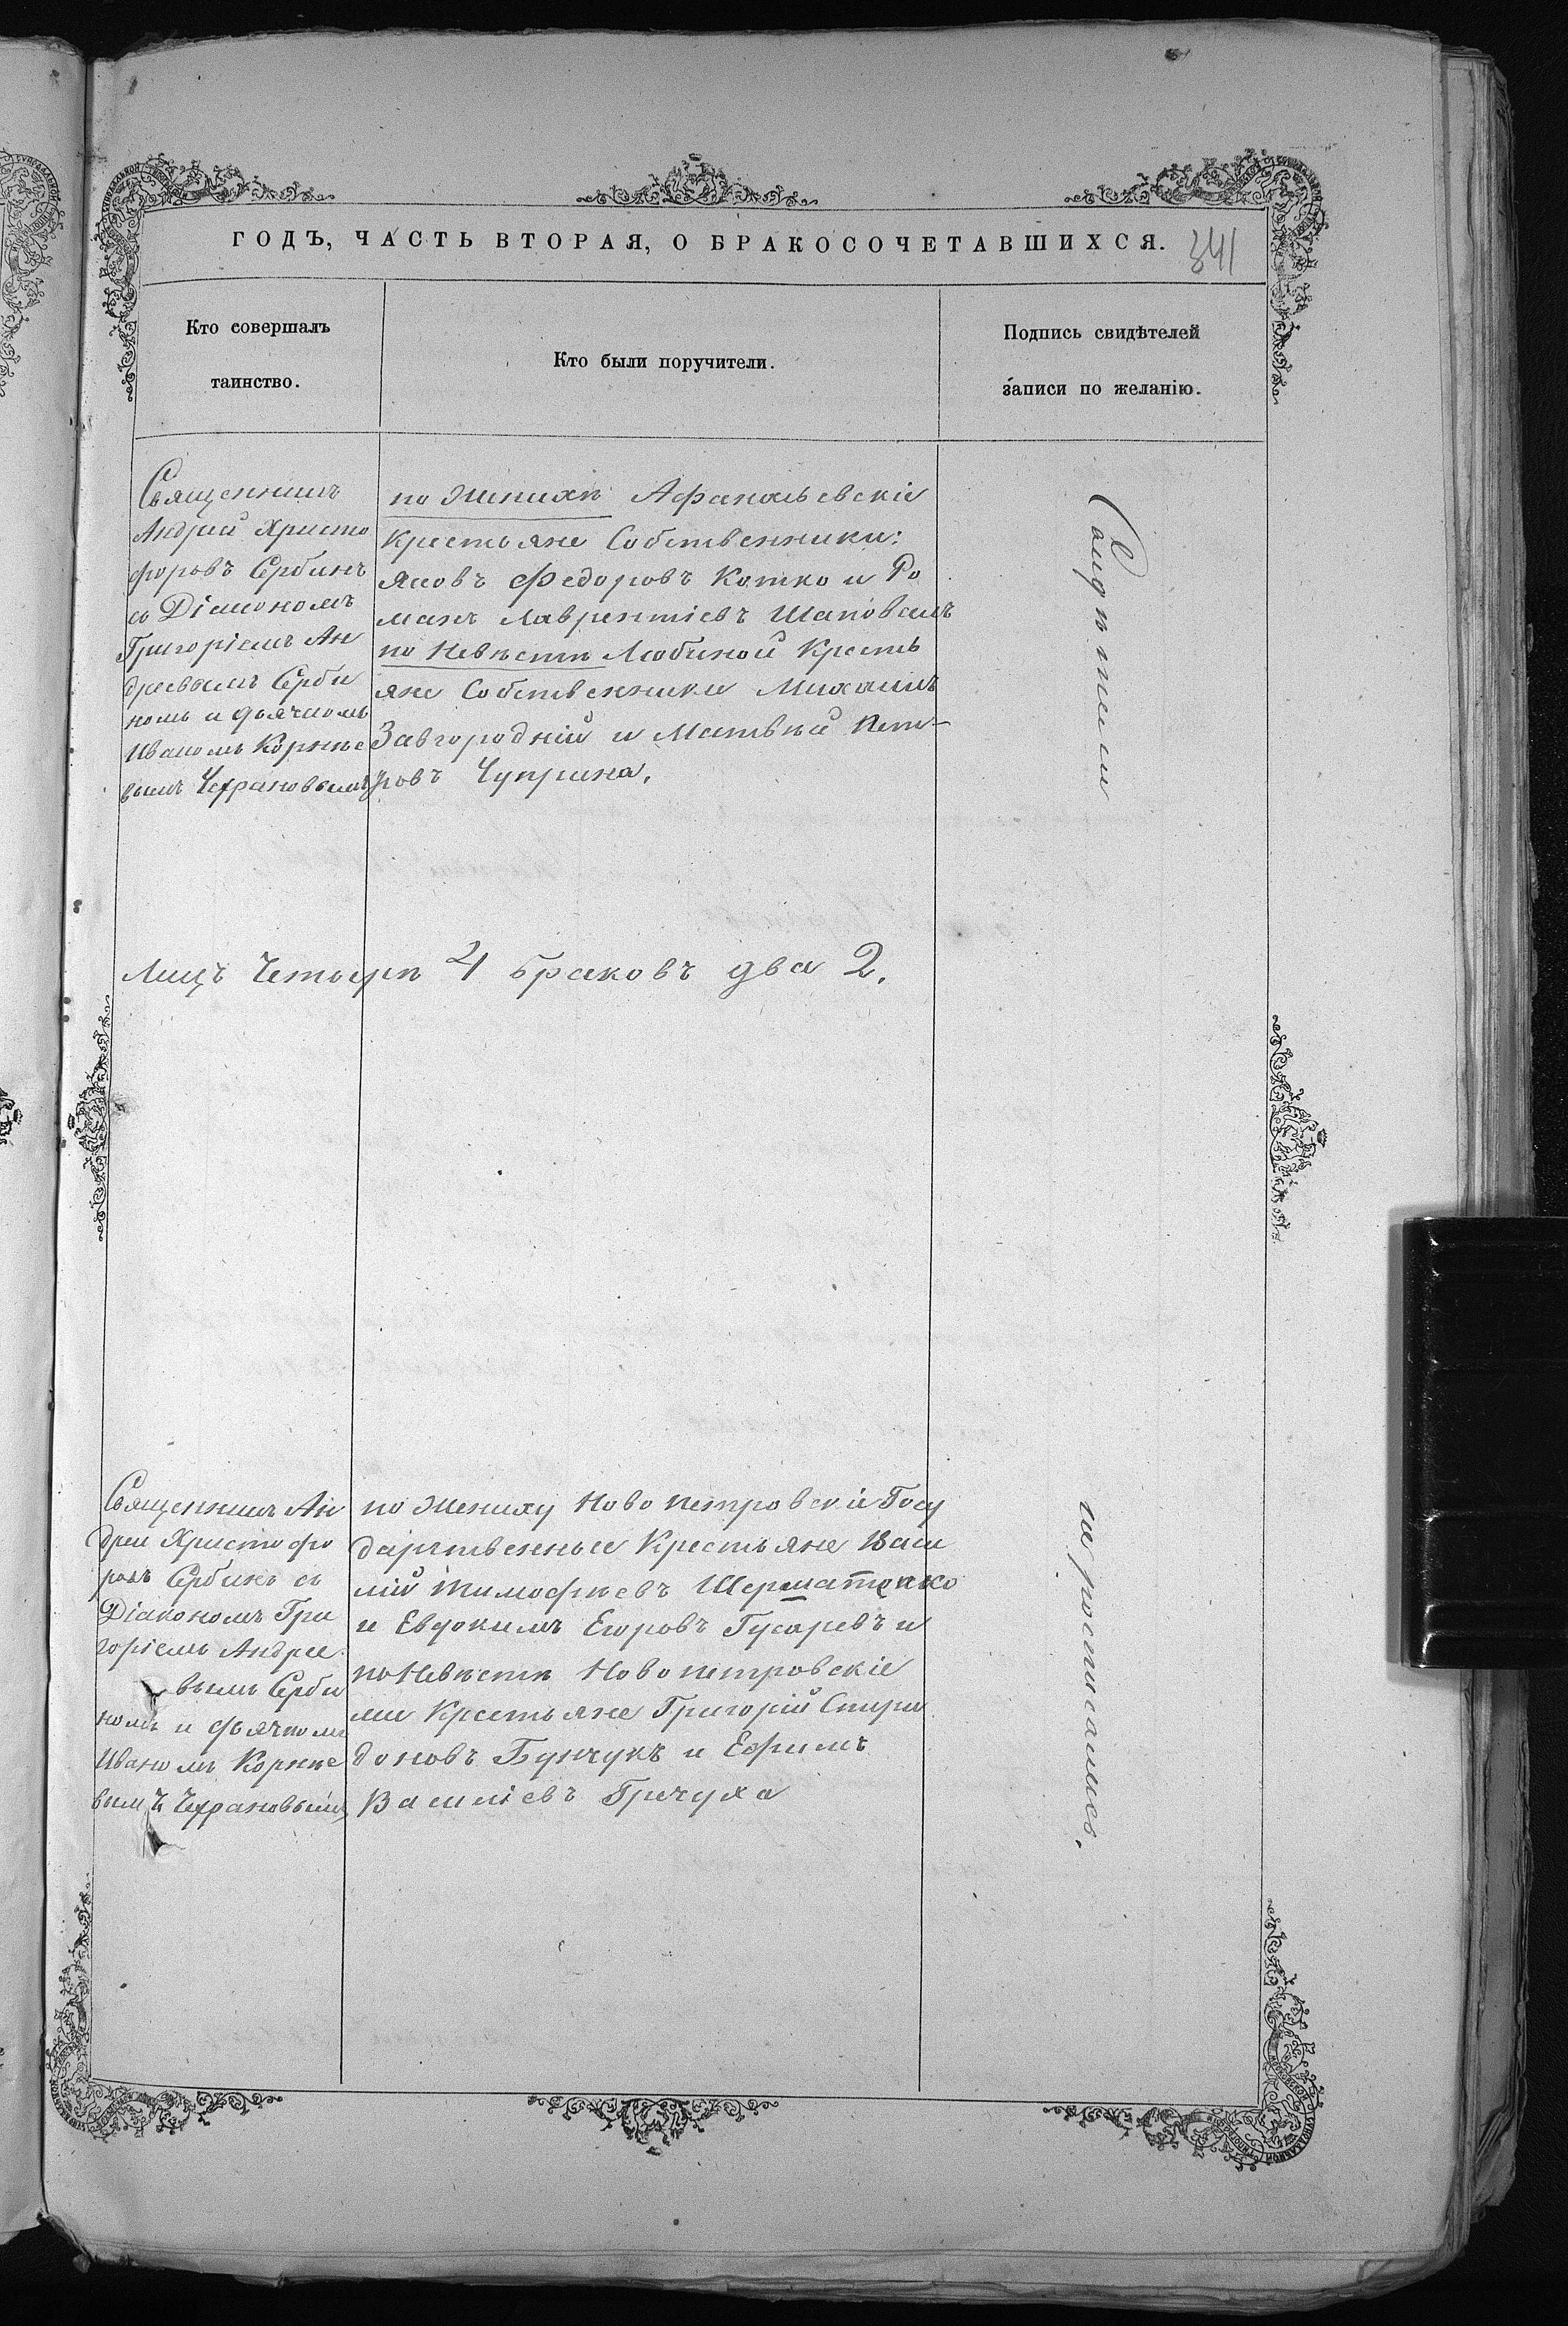 ГОДЪ, ЧАСТЬ ВТОРАЯ, О БРАКОСОЧЕТАВШИХСЯ.
341
Кто совершалъ
таинство.
Кто были поручители.
Подпись свидѣтелей
записи по желанію.
Священникъ
Андрей Христо
форовъ Сербинъ
съ Діакономъ
Григоріемъ Ан
дреевымъ Серби
номъ и дьячкомъ
Иваномъ Корнѣе
вымъ Чехрановымъ
по женихѣ Афанасьевскіе
Крестьяне Собственники:
Яковъ Федоровъ Котко и Ро
манъ Лаврентіевъ Шаповалъ
по Невѣстѣ Любиной Кресть
яне Собственники Михаилъ
Завгородній и Матвѣй Пет-
ровъ Чуприна.
Свидѣтели
Лицъ Четырѣ 4 браковъ два 2.
Священникъ Ан
дрей Христофо
ровъ Сербинъ съ
Діакономъ Гри
горіемъ Андрее
вымъ Серби
номъ и дьячкомъ
Иваномъ Корнѣе
вымъ Чехрановымъ
по жениху Ново петровскіе Госу
дарственные Крестьяне Васи
лій Тимофѣевъ Шерматенко
и Евдокимъ Егоровъ Гусаревъ и
по Невѣстѣ Ново петровскіе
ми Крестьяне Григорій Спири
доновъ Бунчукъ и Ефимъ
Василіевъ Гречуха
на росписались.